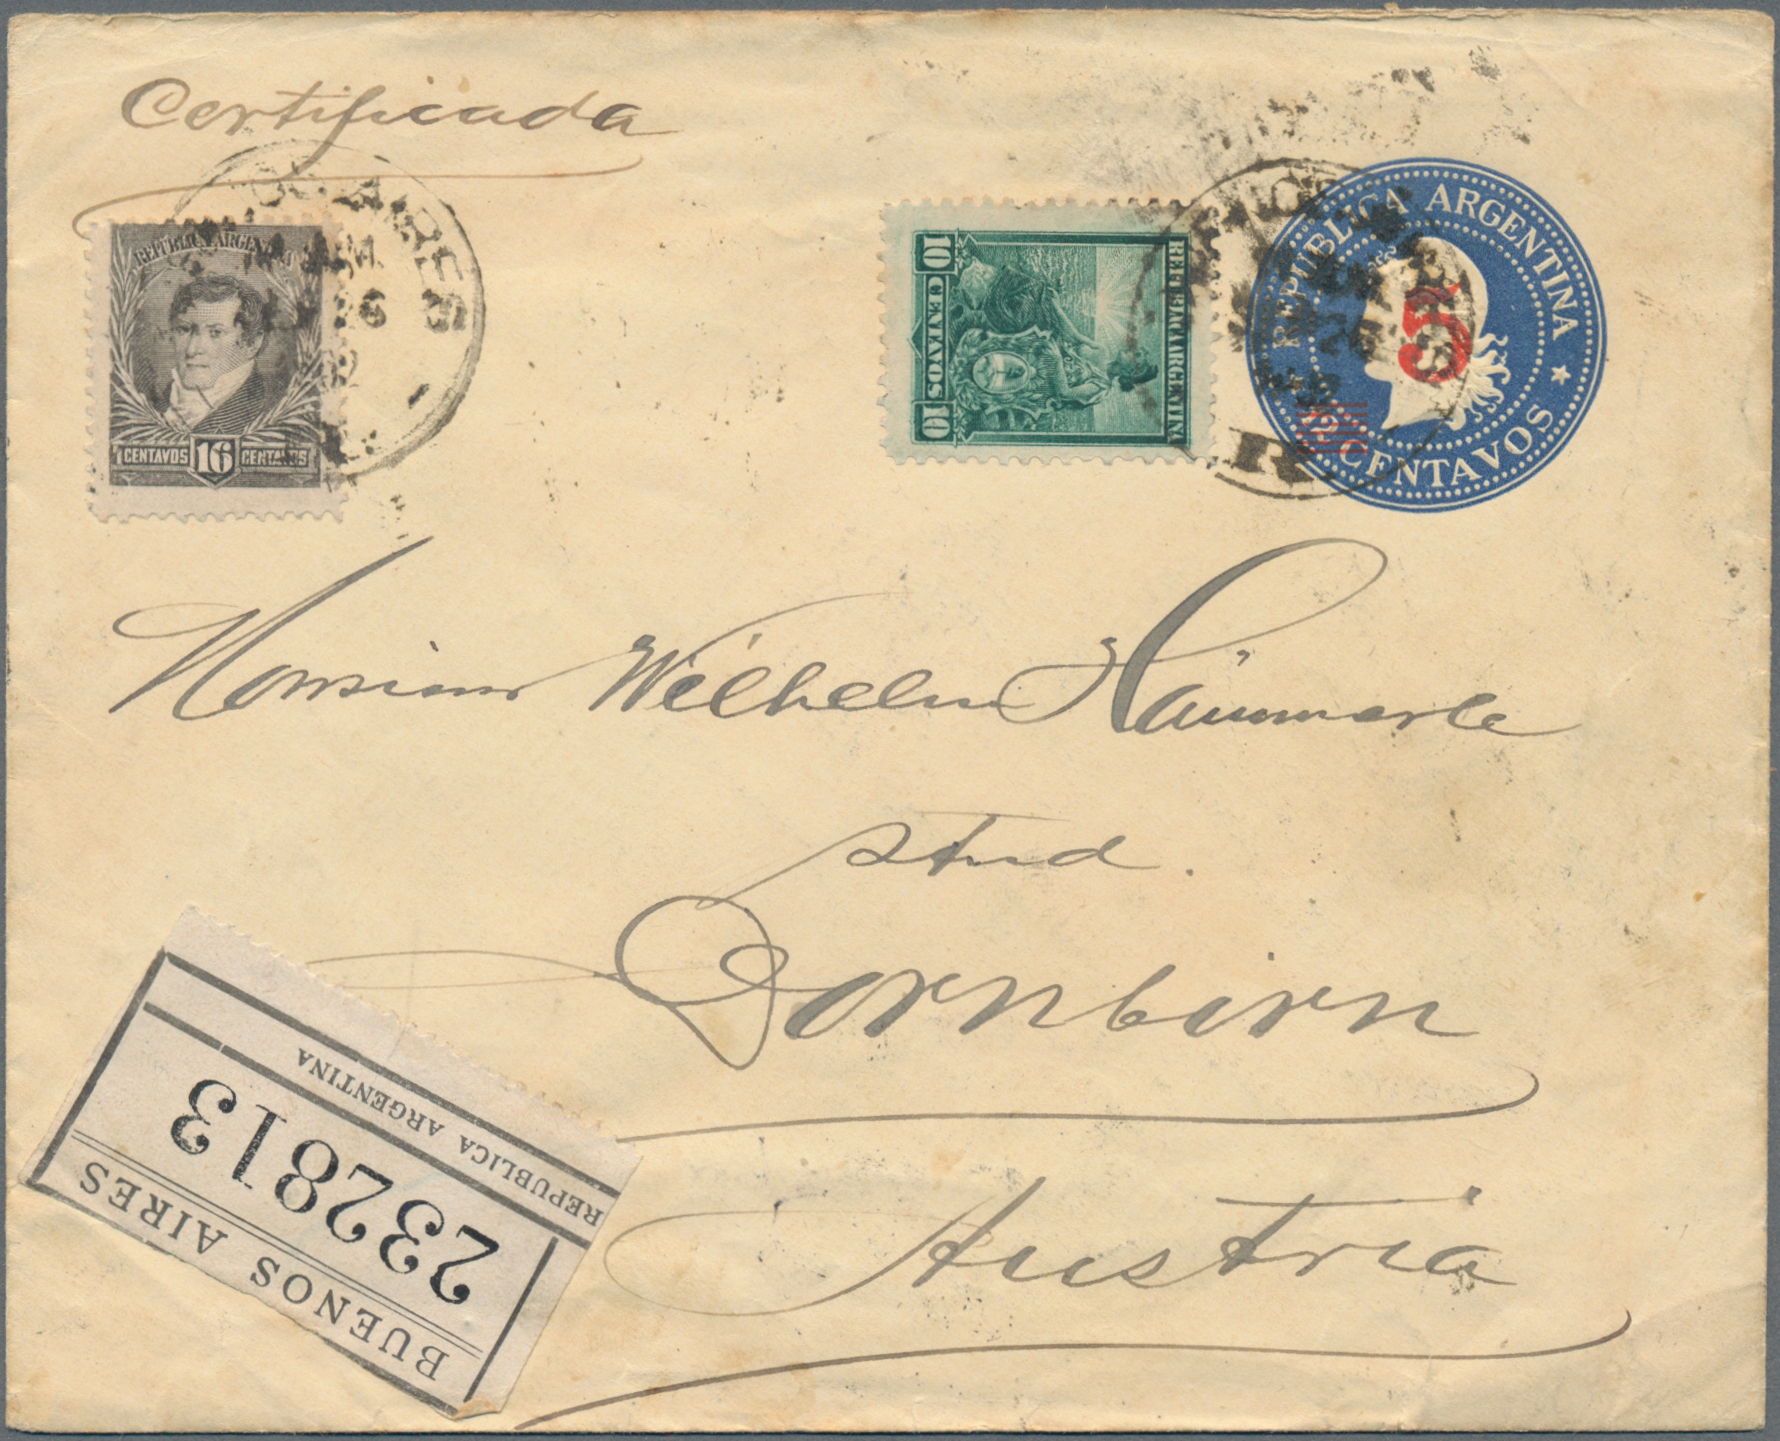 Certificada
REPÚBLICA ARGENTINA
CENTAVOS 16 CENTAVOS
AIRES
26
REPUBLICA ARGENTINA
10 CENTAVOS 10
REPUBLICA ARGENTINA
5
12 CENTAVOS
26
R
Monsieur Wilhelm Hämmerle
stud.
Dornbirn
Austria
REPUBLICA ARGENTINA
232813
BUENOS AIRES